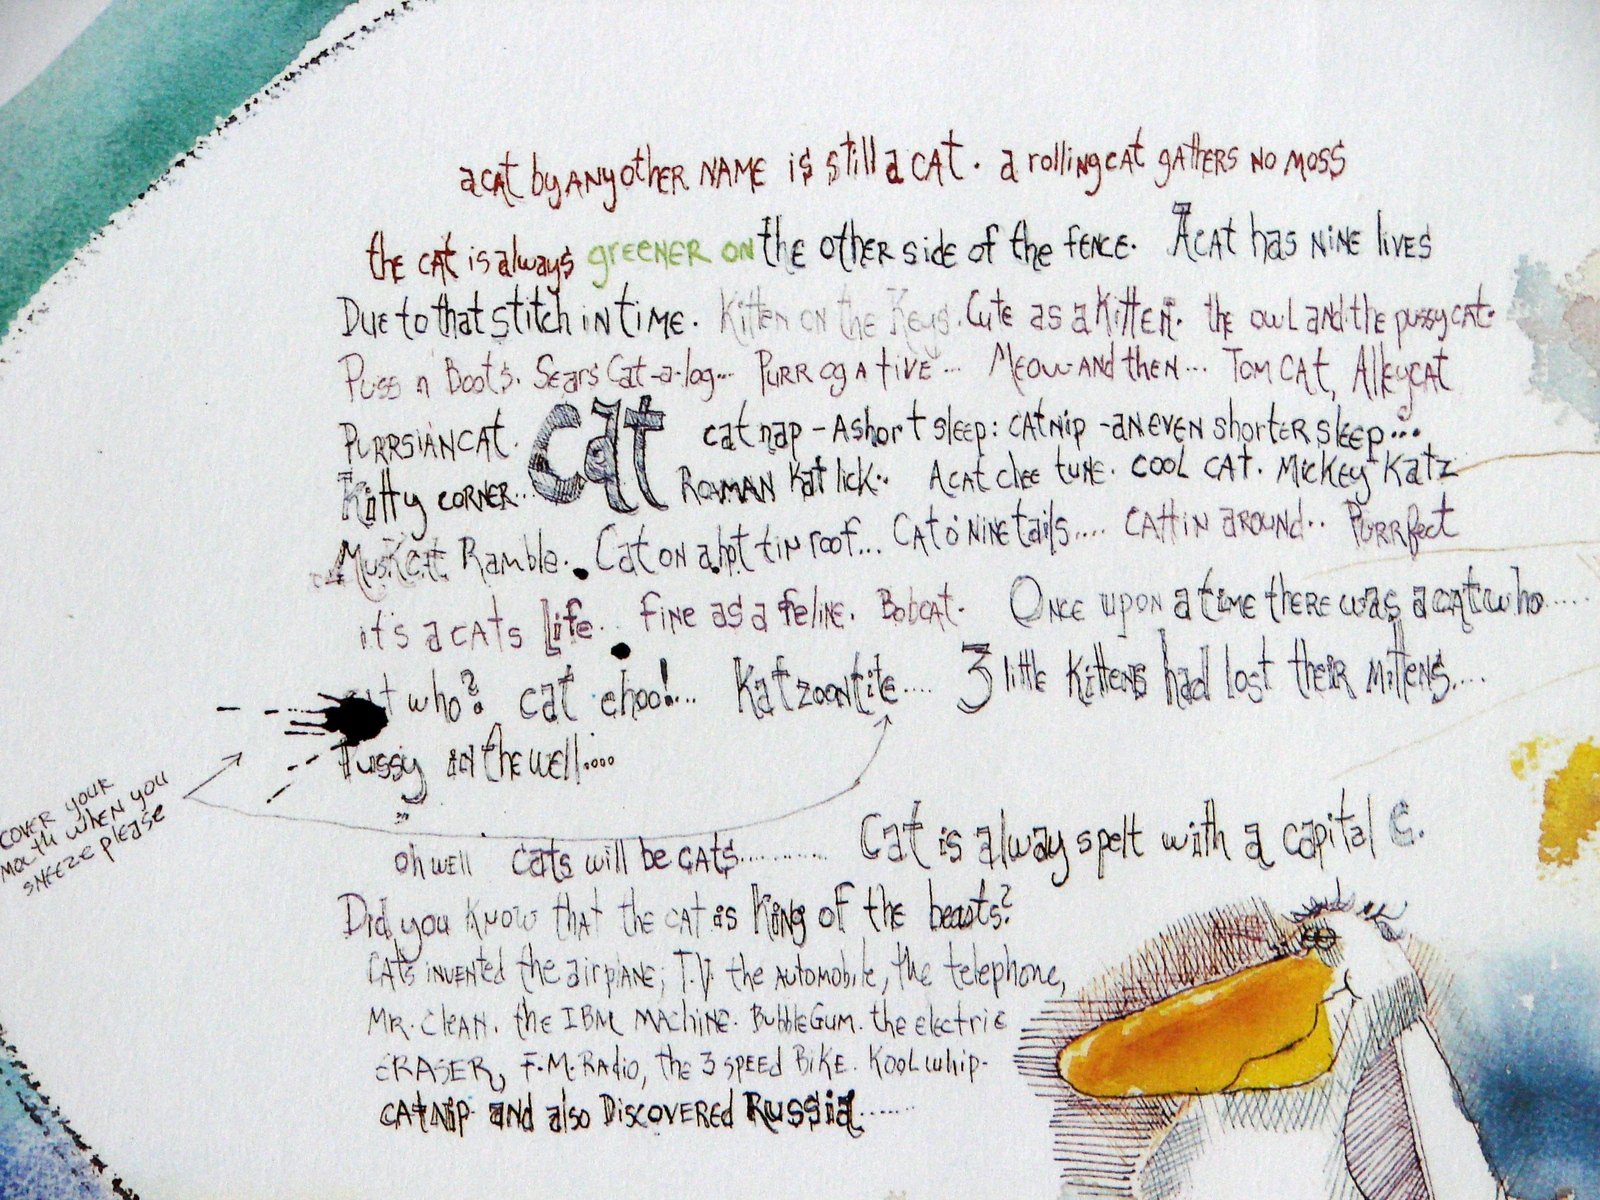 a cat by any other NAME is still a CAT. a rolling cat gathers NO MOSS
the cat is always greener on the other side of the fence. A cat has NINE lives
Due to that stitch in time. Kitten on the Keys. Cute as a Kitten. the owl and the pussy cat.
Puss n Boots. Sears Cat-a-log... PURR og a tive... Meow and then... TOM CAT, Alley cat
PURRSIAN CAT. cat nap - A short sleep: catnip - an even shorter sleep...
Kitty corner... cat ROAMAN Kat lick.. A cat chee tune. COOL CAT. Mickey Katz
Muskat Ramble. Cat on a hot tin roof... Cat o' nine tails.... CATTIN AROUND.. Purrfect
it's a cats Life.. fine as a feline. Bobcat. Once upon a time there was a cat who.....
who? cat choo!... Katzoontite.... 3 little kittens had lost their mittens....
Pussy in the well....
COVER YOUR
MOUTH WHEN YOU
SNEEZE please
oh well cats will be cats........... Cat is alway spelt with a capital C.
Did you know that the cat is King of the beasts?
Cats invented the airplane; T.V. the automobile, the telephone,
MR. CLEAN. the IBM MACHINE. BubbleGum. the electric
ERASER, F.M. Radio, the 3 speed Bike. Kool whip-
CATNIP and also Discovered Russia.......